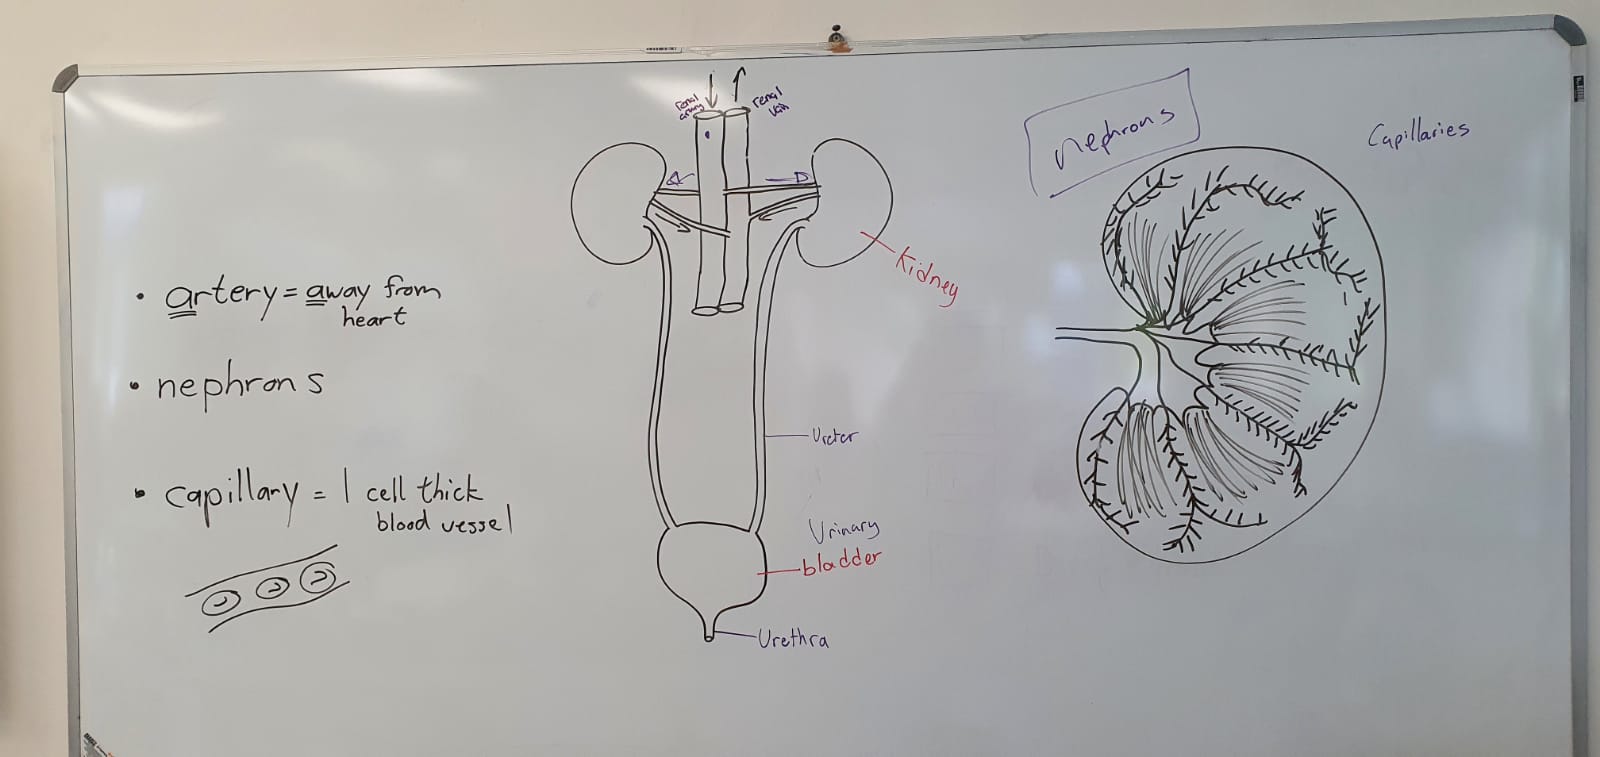 • artery = away from
heart
• nephrons
• capillary = 1 cell thick
blood vessel
renal
artery
renal
vein
Kidney
Ureter
Urinary
bladder
Urethra
nephrons
Capillaries